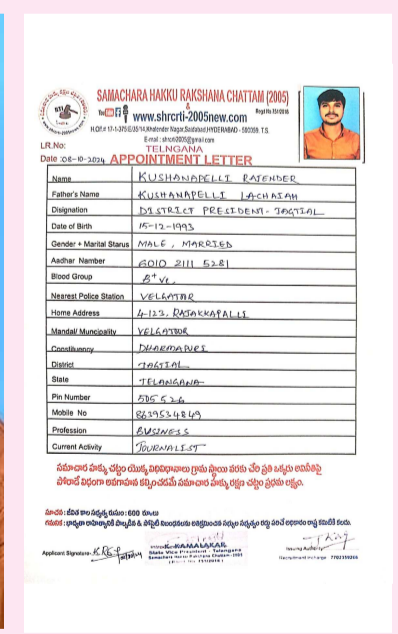 SAMACHARA HAKKU RAKSHANA CHATTAM (2005)
&
www.shrcrti-2005new.com
H.O!!.# 17-1-375/E/35/14,Khalender Nagar,Saidabad,HYDERABAD - 500059. T.S.
E-mail : shrcrti2005@gmail.com
LR.No:
TELNGANA
Date :08-10-2024 APPOINTMENT LETTER
Name KUSHANAPELLI RAJENDER
Father's Name KUSHANAPELLI LACHAIAH
Disignation DISTRICT PRESIDENT- JAGTIAL
Date of Birth 15-12-1993
Gender + Marital Starus MALE, MARRIED
Aadhar Namber 6010 2111 5281
Blood Group B+ Ve.
Nearest Police Station VELGATOOR
Home Address 4-123, RAJAKKAPALLI
Mandal/ Muncipality VELGATOOR
Constituency DHARMAPURI
District JAGTIAL
State TELANGANA
Pin Number 505526
Mobile No 8639534849
Profession BUSINESS
Current Activity JOURNALIST
సమాచార హక్కు చట్టం యొక్క విధివిధానాలు గ్రామ స్థాయి వరకు చేరి ప్రతి ఒక్కరు అవినీతిపై
పోరాడే విధంగా అవగాహన కల్పించడమే సమాచార హక్కు రక్షణ చట్టం ప్రథమ లక్ష్యం.
సూచన : జీవిత కాల సభ్యత్వ రుసుం : 600 రూలు
Applicant Signature-
K. KAMALAKAR
State Vice President - Telangana
Samachara Hakku Rakshana Chattam -2005
Issuing Authority
Recruitment incharge 7702359265